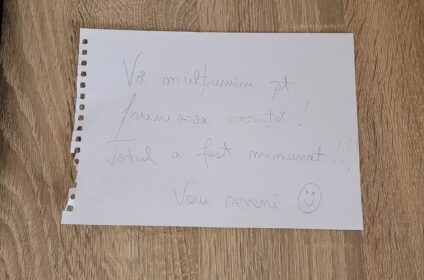 Vă mulțumim pt
frumoasa vacanță!
Totul a fost minunat!!!
Vom reveni